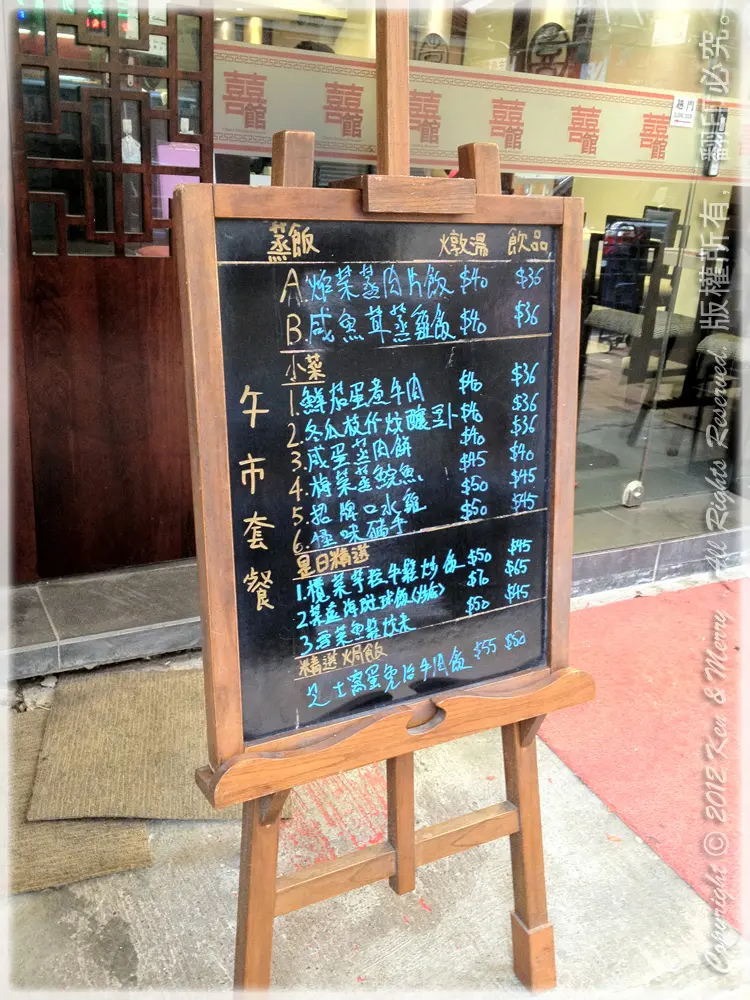 囍館 囍館 囍館 囍館 囍館 囍館
趟門
SLIDING DOOR
午市套餐
蒸飯 燉湯 飲品
A.炸菜蒸肉片飯 $40 $36
B.咸魚茸蒸雞飯 $40 $36
小菜
1.鮮茄蛋煮牛肉 $40 $36
2.冬瓜枝竹炆釀豆卜 $40 $36
3.咸蛋蒸肉餅 $40 $36
4.梅菜蒸鯇魚 $45 $40
5.招牌口水雞 $50 $45
6.怪味豬手 $50 $45
是日精選
1.欖菜 牛鬆炒飯 $50 $45
2. $70 $65
3. $50 $45
精選焗飯
芝士窩蛋免治牛肉飯 $55 $50
Copyright © 2012 Ken & Merry, All Rights Reserved. 版權所有, 翻印必究。